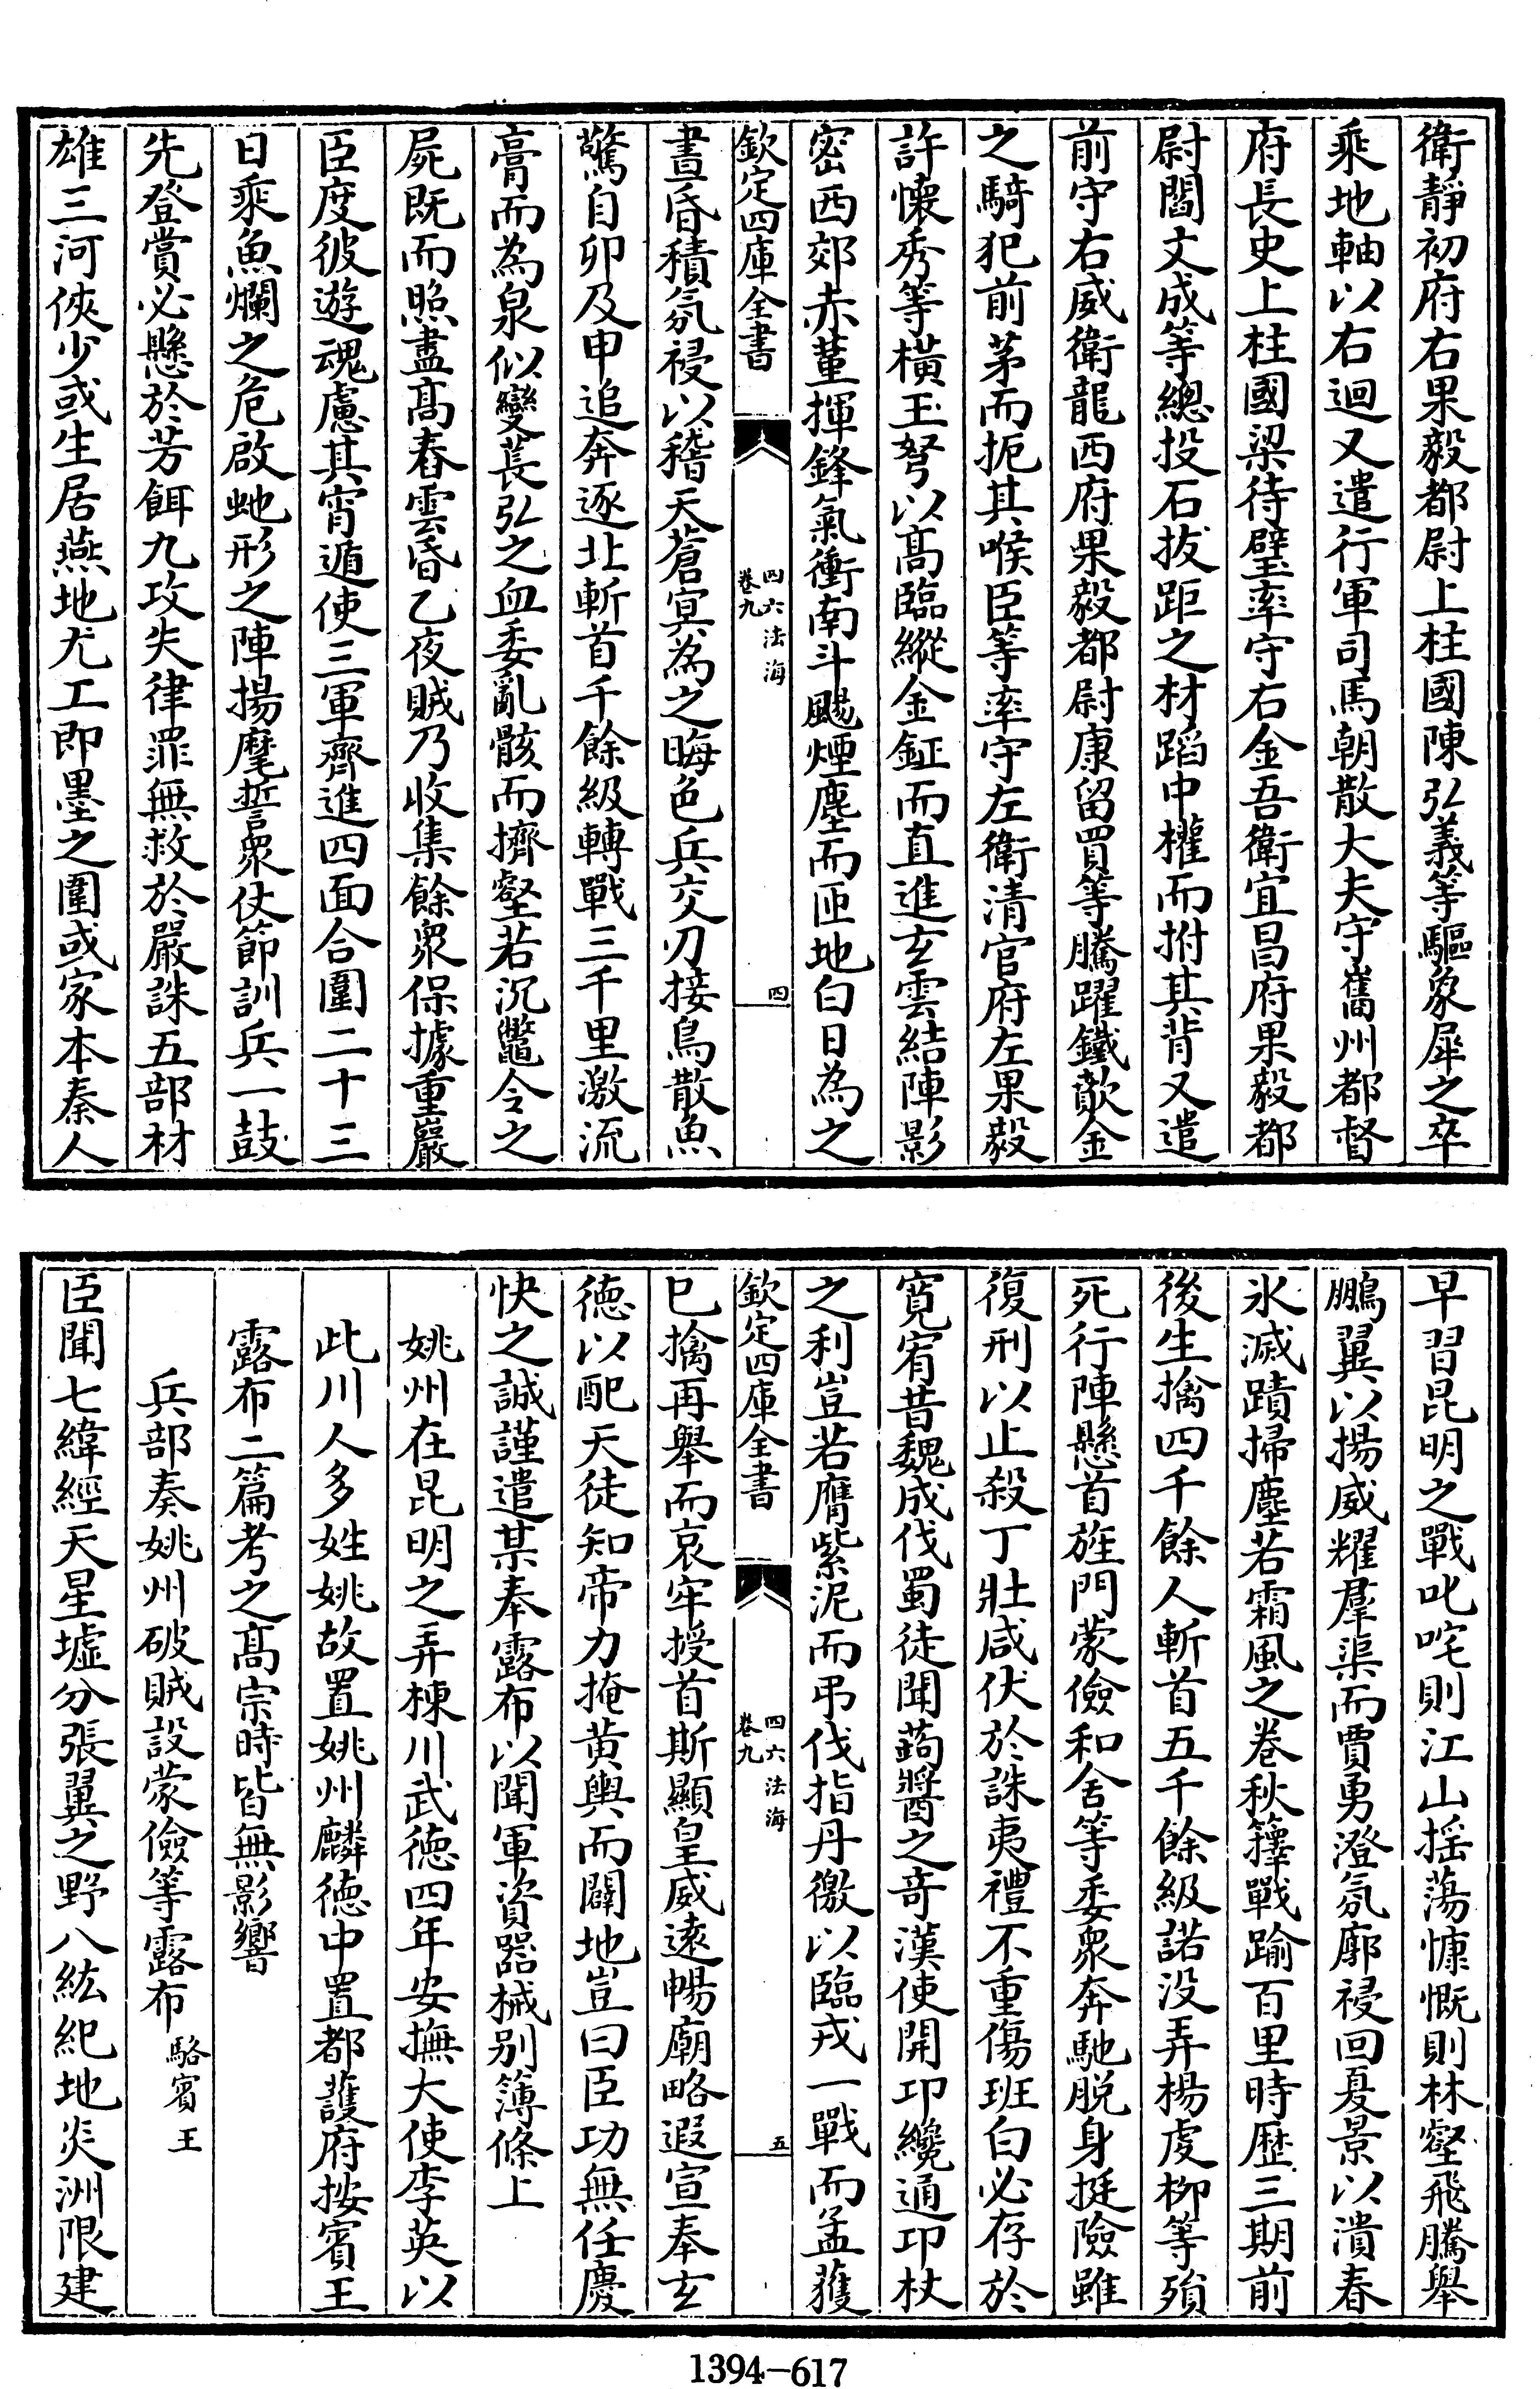 衛靜初府右果毅都尉上柱國陳弘義等驅象犀之卒
乘地軸以右迴又遣行軍司馬朝散大夫守巂州都督
府長史上柱國梁待壁率守右金吾衛宜昌府果毅都
尉閻文成等總投石拔距之材蹈中權而拊其背又遣
前守右威衛龍西府果毅都尉康留買等騰躍鐵歕金
之騎犯前茅而扼其喉臣等率守左衛清官府左果毅
許懷秀等橫玉弩以髙臨縱金鉦而直進玄雲結陣影
密西郊赤堇揮鋒氣衝南斗颺煙塵而匝地白日為之
欽定四庫全書
四六法海
卷九
四
晝昏積氛祲以稽天蒼㝠為之晦色兵交刃接鳥散魚
驚自卯及申追奔逐北斬首千餘級轉戰三千里激流
膏而為泉似變萇弘之血委亂骸而擠壑若沉鼈令之
屍既而照盡髙舂雲昏乙夜賊乃收集餘衆保據重巖
臣度彼遊魂慮其宵遁使三軍齊進四面合圍二十三
日乘魚爛之危啟虵形之陣揚麾誓衆仗節訓兵一鼓
先登賞必懸於芳餌九攻失律罪無救於嚴誅五部材
雄三河俠少或生居燕地尤工即墨之圍或家本秦人
早習昆明之戰叱咤則江山摇蕩慷慨則林壑飛騰舉
鵬翼以揚威耀羣渠而賈勇澄氛廓祲回戞景以潰春
氷滅蹟掃塵若霜風之卷秋籜戰踰百里時歴三期前
後生擒四千餘人斬首五千餘級諾没弄楊虔柳等殞
死行陣懸首旌門蒙儉和舍等委衆奔馳脱身挺險雖
復刑以止殺丁壯咸伏於誅夷禮不重傷班白必存於
寛宥昔魏成伐蜀徒聞蒟醬之竒漢使開卭纔通卭杖
之利豈若膺紫泥而弔伐指丹徼以臨戎一戰而孟獲
欽定四庫全書
四六法海
卷九
五
已擒再舉而哀牢授首斯顯皇威逺暢廟略遐宣奉玄
德以配天徒知帝力掩黄輿而闢地豈曰臣功無任慶
快之誠謹遣某奉露布以聞軍資器械别簿條上
姚州在昆明之弄棟川武徳四年安撫大使李英以
此川人多姓姚故置姚州麟徳中置都護府按賓王
露布二篇考之髙宗時皆無影響
兵部奏姚州破賊設蒙儉等露布 駱賓王
臣聞七緯經天星墟分張翼之野八紘紀地炎洲限建
1394-617